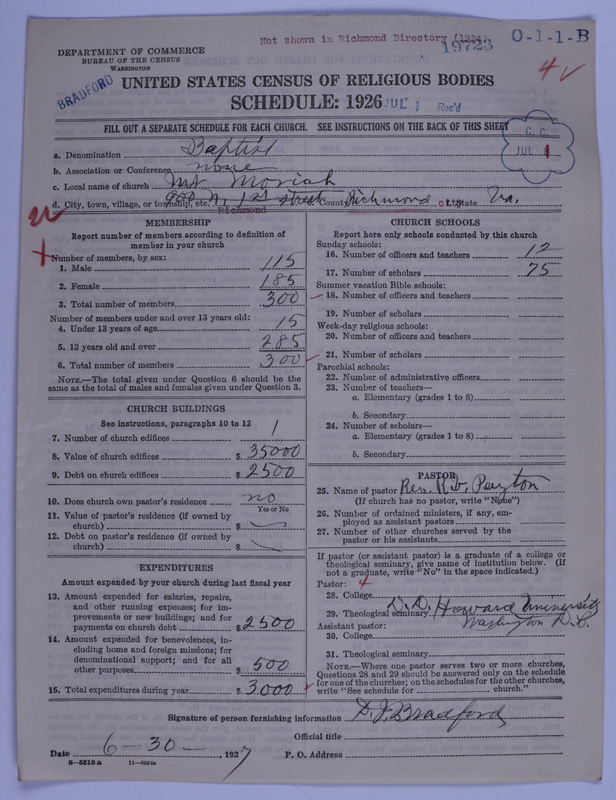 Not shown in Richmond Directory (1924)
19723
O-1-1-B
4
DEPARTMENT OF COMMERCE
BUREAU OF THE CENSUS
WASHINGTON
BRADFORD
UNITED STATES CENSUS OF RELIGIOUS BODIES
SCHEDULE: 1926
JUL 1 Rec'd
FILL OUT A SEPARATE SCHEDULE FOR EACH CHURCH. SEE INSTRUCTIONS ON THE BACK OF THIS SHEET
C. C.
JUL 1
a. Denomination Baptist
b. Association or Conference none
c. Local name of church Mt Moriah
d. City, town, village, or township, etc. 902 N. 1st Street County Richmond city State Va.
Richmond
MEMBERSHIP
Report number of members according to definition of
member in your church
Number of members, by sex:
1. Male 115
2. Female 185
3. Total number of members 300
Number of members under and over 13 years old:
4. Under 13 years of age 15
5. 13 years old and over 285
6. Total number of members 300
NOTE.—The total given under Question 6 should be the
same as the total of males and females given under Question 3.
CHURCH BUILDINGS
See instructions, paragraphs 10 to 12
7. Number of church edifices 1
8. Value of church edifices $ 35000
9. Debt on church edifices $ 2500
10. Does church own pastor's residence no
Yes or No
11. Value of pastor's residence (if owned by
church) $
12. Debt on pastor's residence (if owned by
church) $
EXPENDITURES
Amount expended by your church during last fiscal year
13. Amount expended for salaries, repairs,
and other running expenses; for im-
provements or new buildings; and for
payments on church debt $ 2500
14. Amount expended for benevolences, in-
cluding home and foreign missions; for
denominational support; and for all
other purposes $ 500
15. Total expenditures during year $ 3000
CHURCH SCHOOLS
Report here only schools conducted by this church
Sunday schools:
16. Number of officers and teachers 12
17. Number of scholars 75
Summer vacation Bible schools:
18. Number of officers and teachers
19. Number of scholars
Week-day religious schools:
20. Number of officers and teachers
21. Number of scholars
Parochial schools:
22. Number of administrative officers
23. Number of teachers—
a. Elementary (grades 1 to 8)
b. Secondary
24. Number of scholars—
a. Elementary (grades 1 to 8)
b. Secondary
PASTOR
25. Name of pastor Rev. R. V. Peyton
(If church has no pastor, write "None")
26. Number of ordained ministers, if any, em-
ployed as assistant pastors
27. Number of other churches served by the
pastor or his assistants
If pastor (or assistant pastor) is a graduate of a college or
theological seminary, give name of institution below. (If
not a graduate, write "No" in the space indicated.)
Pastor: 4
28. College
29. Theological seminary D.D. Howard University
Washington D.C.
Assistant pastor:
30. College
31. Theological seminary
NOTE.—Where one pastor serves two or more churches,
Questions 28 and 29 should be answered only on the schedule
for one of the churches; on the schedules for the other churches,
write "See schedule for church."
Signature of person furnishing information D. J. Bradford
Official title
Date 6-30-, 1927 P. O. Address
8-5518a 11-9554a